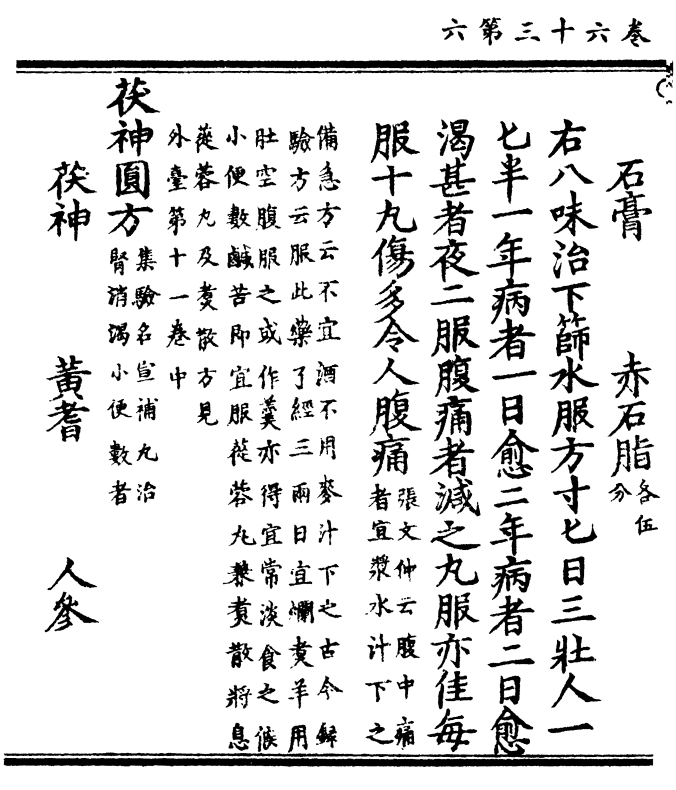 卷六十三第六
石膏　赤石脂各伍分
右八味治下篩水服方寸匕日三壯人一
匕半一年病者一日愈二年病者二日愈
渴甚者夜二服腹痛者減之丸服亦佳每
服十丸傷多令人腹痛
張文仲云腹中痛
者宜漿水計下之
備急方云不宜酒不用麥汁下之古今録
驗方云服此藥了經三兩日宜爛煑羊用
肚空腹服之或作羹亦得宜常淡食之候
小便數鹹苦即宜服蓯蓉丸兼煑散將息
蓯蓉丸及煑散方見
外臺第十一卷中
茯神圓方
集驗名宣補丸治
腎消渴小便數者
茯神　黃耆　人參